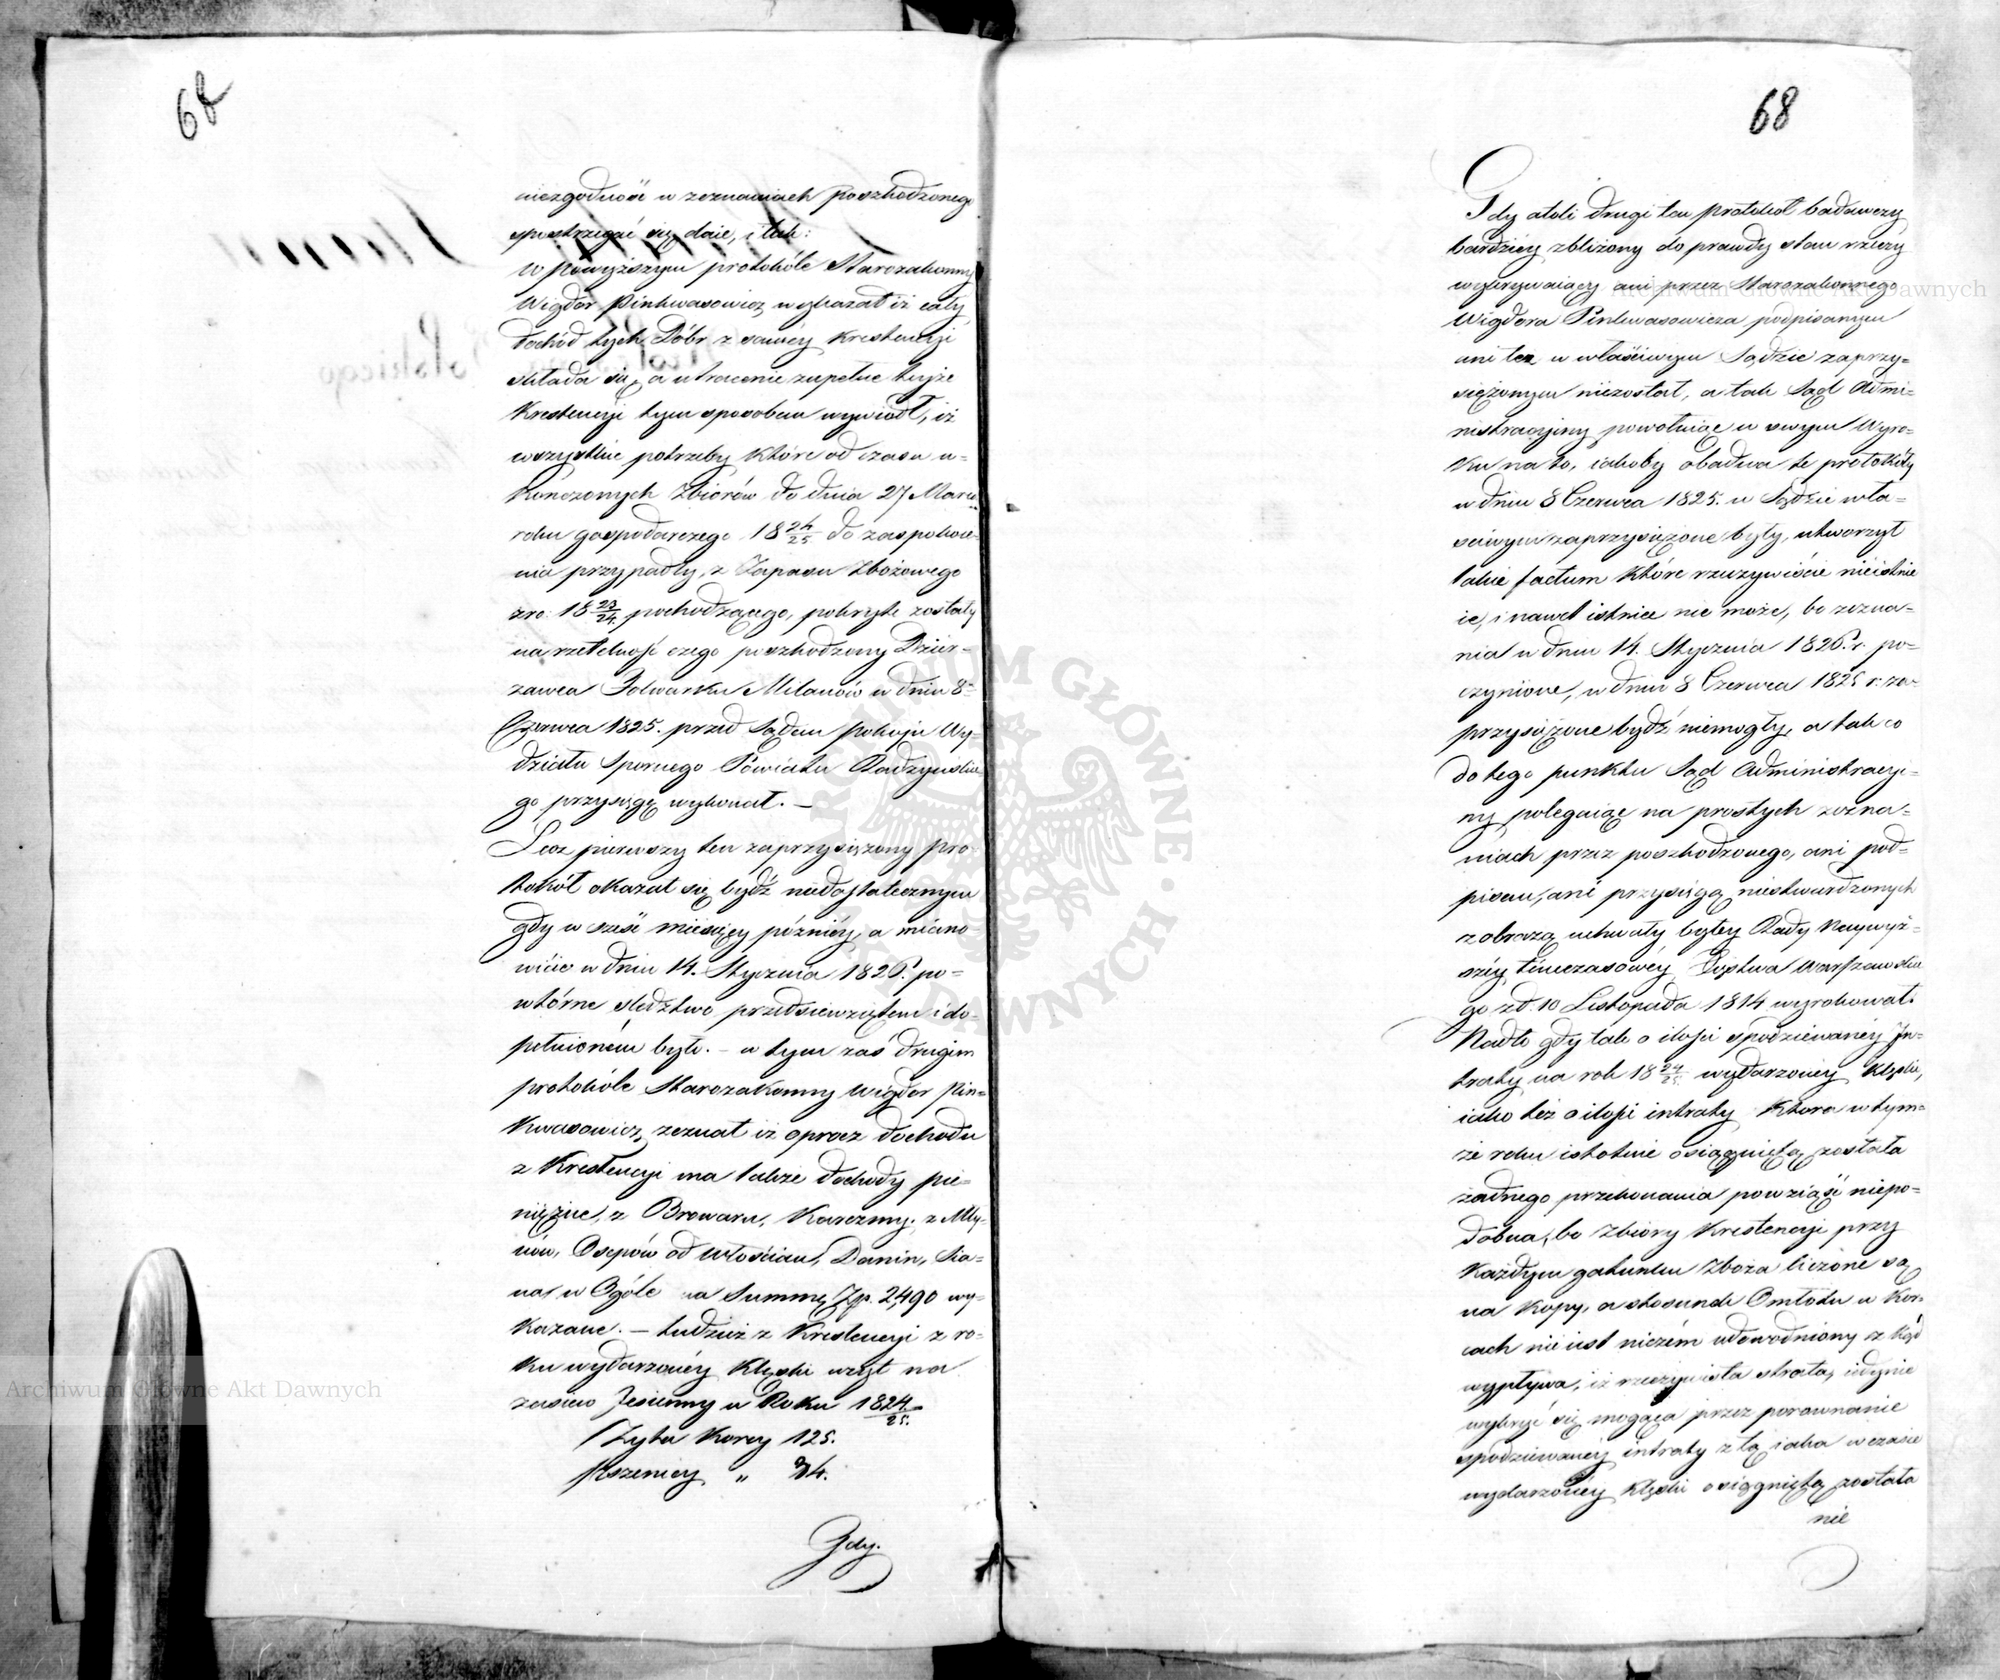 68
niezgodność w zeznaniach poszkodzonego
spostrzegać się daie, i tak:
W powyższym protokóle Starozakonny
Wigdor Pinkwasowicz wykazał iż cały
dochód tych Dóbr z samey krestencyi
składa się, a utracenie zupełne teyże
Krestencyi tym sposobem wywiódł, iż
wszystkie potrzeby które od czasu u-
kończonych Zbiorów do dnia 27 Marca
roku gospodarczego 1824/25 do zaspokoie-
nia przypadły, z Zapasu Zbożowego
z ro: 1823/24 pochodzącego, pokryte zostały
na rzetelność czego poszkodzony Dzier-
zawca Folwarku Milanów w dniu 8m
Czerwca 1825. przed Sądem Pokoju Wy-
działu Spornego Powiatu Radzyńskie-
go przysięgę wykonał. —
Lecz pierwszy ten zaprzysiężony pro-
tokół okazał się bydź niedostatecznym
gdy w sześć miesięcy późniey, a miano-
wicie w dniu 14. Stycznia 1826 r. po-
wtórne śledztwo przedsiewziętem i do-
pełnionem było. — w tym zaś drugim
protokóle Starozakonny Wigdor Pin-
kwasowicz, zeznał iż oprocz dochodu
z Krestencyi ma także dochody pie-
niężne, z Browaru, Karczmy, z Mły-
nów, Osepów od Włościan, Danin, Sia-
na, w Ogóle na Summę Zp. 2,490 wy-
kazane. — tudzież z Krestencyi z ro-
ku wydarzoney Klęski wziął na
zasiew Jesienny w Roku 1824/25.
Żyta Korcy 125.
Pszenicy „ 34.
Gdy.
68
Gdy atoli drugi ten protokół badawczy
bardziey zbliżony do prawdy stan rzeczy
wykrywaiący ani przez Starozakonnego
Wigdora Pinkwasowicza podpisanym
ani też w właściwym Sądzie zaprzy-
siężonym niezostał, a tak Sąd Admi-
nistracyiny powołuiąc w swym Wyro-
ku na to, iakoby obadwa te protokóły
w dniu 8 Czerwca 1825. w Sądzie wła-
sciwym zaprzysiężone były, utworzył
takie factum które rzeczywiście nieistnie
ie, i nawet istnieć nie może, bo zezna-
nia w dniu 14. Stycznia 1826 r. po-
czynione, w dniu 8 Czerwca 1825 r: za-
przysiężone bydź niemogły, a tak co
do tego punktu Sąd Administracyi-
ny polegaiąc na prostych zezna-
niach przez poszkodzonego, ani pod-
pisem, ani przysięgą niestwierdzonych
z obrazą uchwały byłey Rady Naywyż-
szey tymczasowey Xięstwa Warszawskie
go z d: 10 Listopada 1814 wyrokował.
Nadto gdy tak o ilości spodziewaney In-
traty na rok 1824/25 wydarzoney Klęski,
iako też o ilości intraty która w tym-
że roku istotnie osiągniętą została
żadnego przekonania powziąść niepo-
dobna, bo Zbiory Krestencyi przy
Każdym gatunku Zboża liczone są
na Kopy, a stosunek Omłotu w Kor-
cach nie iest niczém udowodniony z kąd
wypływa, iż rzeczywista strata, iedynie
wykryć się mogąca przez porównanie
spodziewaney intraty z tą iaka w czasie
wydarzoney klęski osiągniętą została
nie
ARCHIWUM GŁÓWNE AKT DAWNYCH
Archiwum Główne Akt Dawnych
Archiwum Główne Akt Dawnych